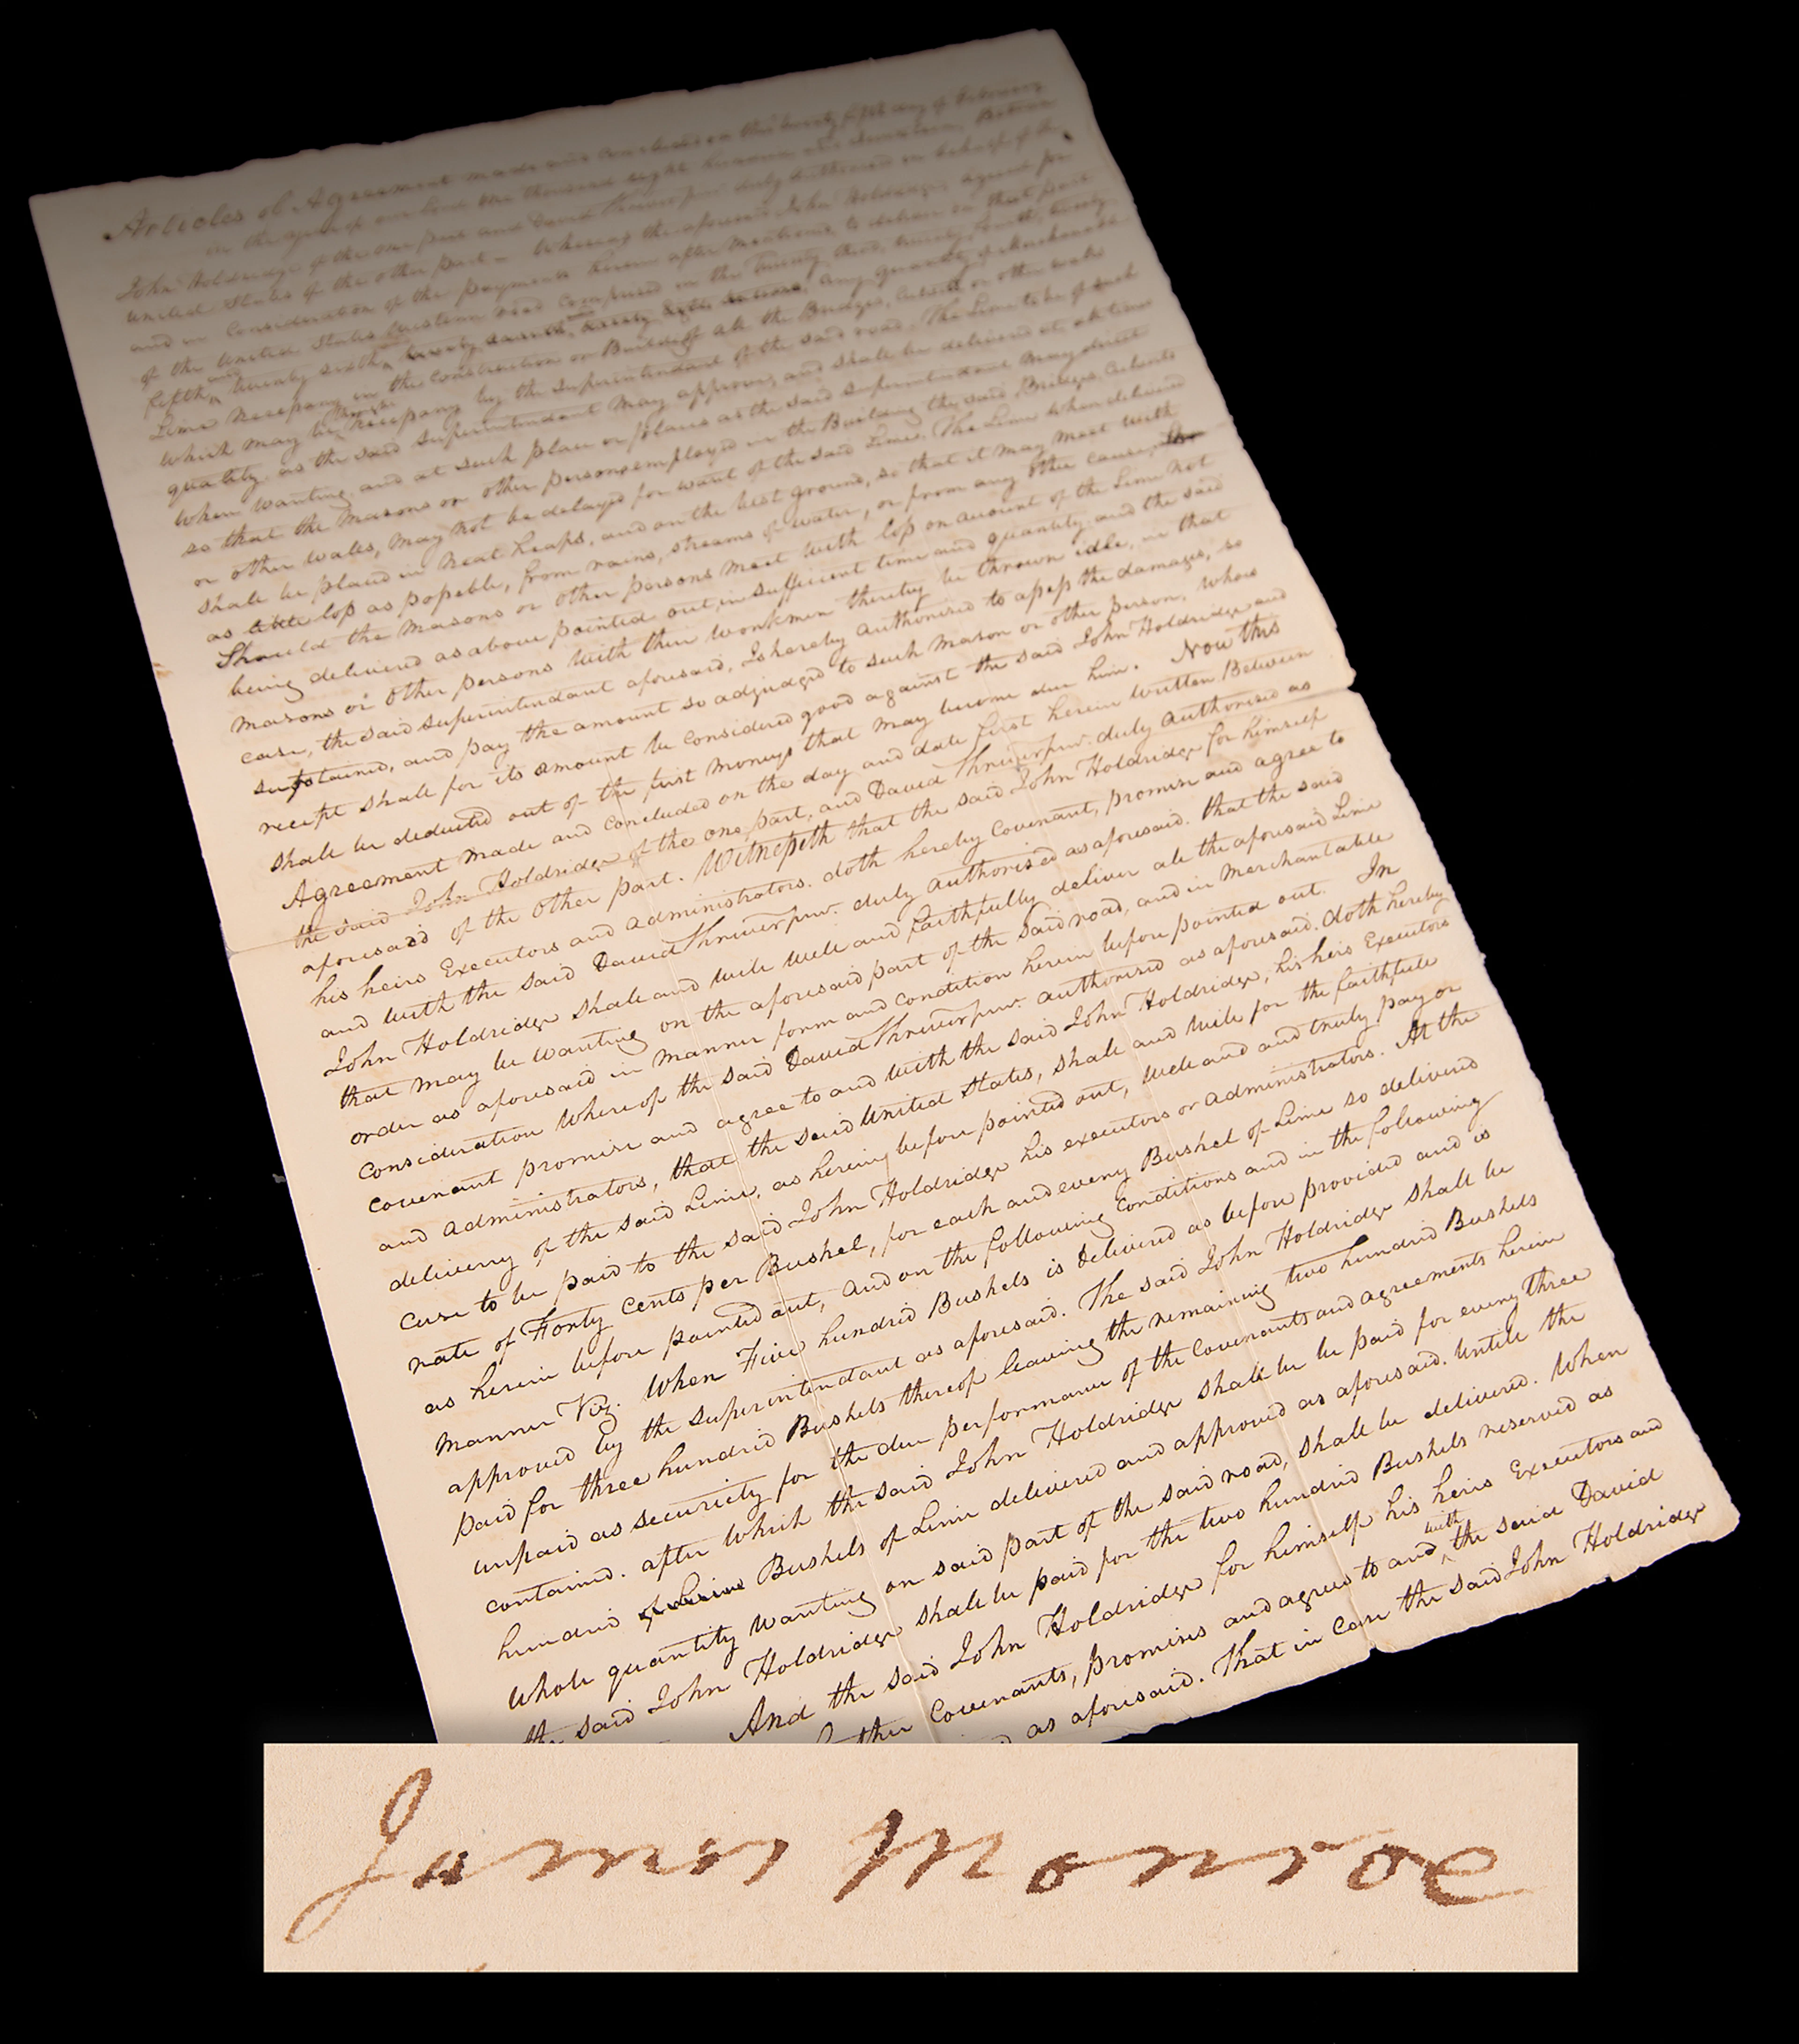 Articles of Agreement made and concluded on this twenty fifth day of February
in the year of our Lord One thousand eight hundred and Seventeen, Between
John Holdridge of the one part and David Shriver jur. duly authorised on behalf of the
United States of the other part - Whereas the aforesaid John Holdridge, agreed for
and in consideration of the payments herein after mentioned, to deliver on that part
of the United States Western Road comprised in the Twenty third, twenty fourth, twenty
fifth, and twenty sixth, any quantity of Merchantable
Lime necessary in the construction or Building of all the Bridges, Culverts or other walls
which may be necessary by the Superintendant of the said road. The Lime to be of such
quality as the said Superintendant may approve, and shall be delivered at all times
when wanting, and at such place or places as the said superintendant may direct
so that the masons or other persons employed in the Building the said Bridges, Culverts
or other walls, may not be delayed for want of the said Lime. The Lime when delivered
shall be placed in neat heaps, and on the best ground, so that it may meet with
as little loss as possible, from rains, streams of water, or from any other cause,
Should the masons or other persons meet with loss on account of the Lime not
being delivered as above pointed out, in sufficient time and quantity, and the said
masons or other persons with their workmen thereby be thrown idle, in that
case, the said superintendant aforesaid, Is hereby authorised to assess the damages, so
sustained, and pay the amount so adjudged to such mason or other person, whose
receipt shall for its amount be considered good against the said John Holdridge and
shall be deducted out of the first moneys that may become due him. Now this
Agreement made and concluded on the day and date first herein written Between
the said John Holdridge of the one part, and David Shriver jur. duly authorised as
aforesaid of the other part. Witnesseth that the said John Holdridge for himself
his heirs Executors and administrators. doth hereby Covenant, promise and agree to
and with the said David Shriver jur. duly authorised as aforesaid. that the said
John Holdridge shall and will well and faithfully deliver all the aforesaid Lime
that may be wanting on the aforesaid part of the said road, and in merchantable
order as aforesaid in manner form and condition herein before pointed out. In
consideration whereof the said David Shriver jur. authorised as aforesaid. doth hereby
covenant promise and agree to and with the said John Holdridge, his heirs Executors
and administrators, that the said United States, shall and will for the faithfull
delivery of the said Lime, as herein before pointed out, well and and truly pay or
cause to be paid to the said John Holdridge his executors or administrators. At the
rate of Forty cents per Bushel, for each and every Bushel of Lime so delivered
as herein before pointed out, and on the following conditions and in the following
manner Viz. When Five hundred Bushels is delivered as before provided and is
approved by the superintendant as aforesaid. The said John Holdridge shall be
paid for three hundred Bushels thereof leaving the remaining two hundred Bushels
unpaid as securiety for the due performance of the Covenants and agreements herein
contained. after which the said John Holdridge shall be be paid for every three
hundred of Lime Bushels of Lime delivered and approved as aforesaid. untill the
whole quantity wanting on said part of the said road, shall be delivered. When
the said John Holdridge shall be paid for the two hundred Bushels reserved as
And the said John Holdridge for himself his heirs Executors and
further Covenants, promises and agrees to and with the said David
as aforesaid. That in case the said John Holdridge
James Monroe